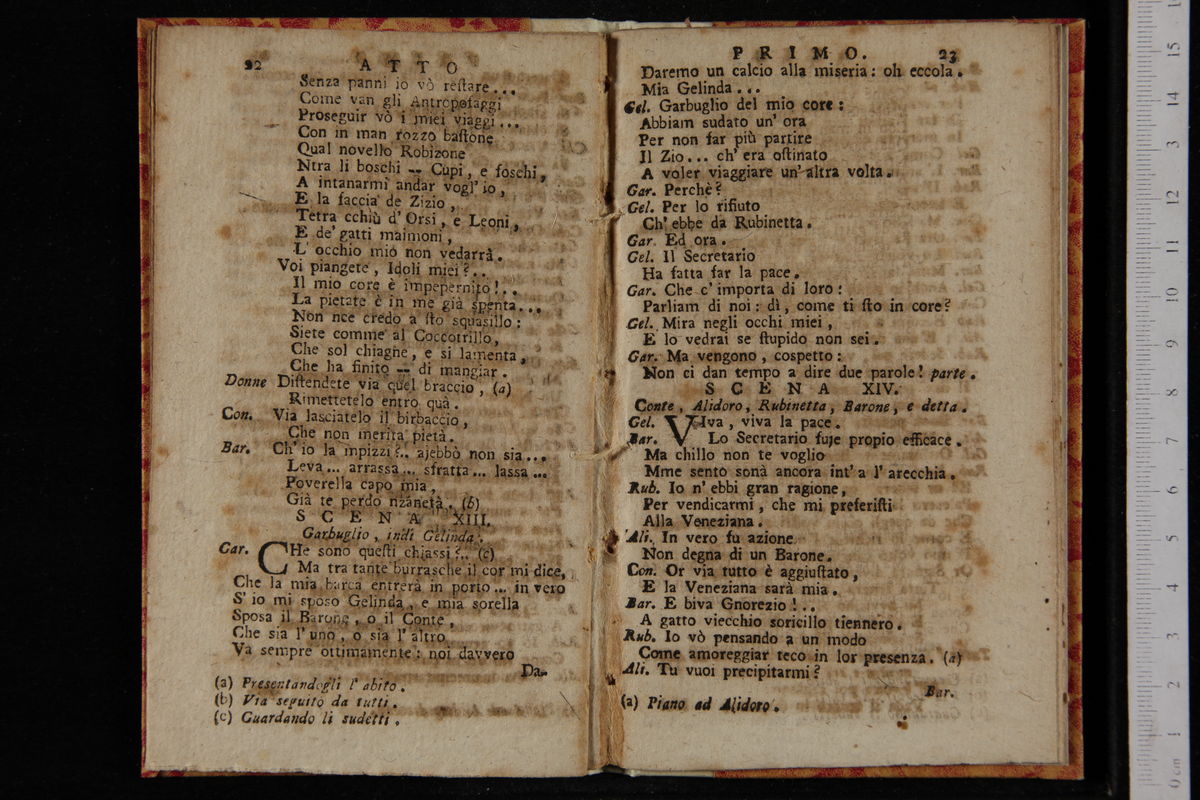 22 ATTO
Senza panni io vò reſtare...
Come van gli Antropofaggi
Proseguir vò i miei viaggi...
Con in man rozzo baſtone
Qual novello Robizone
Ntra li boschi -- Cupi, e foschi,
A intanarmi andar vogl' io,
E la faccia de Zizio,
Tetra cchiù d' Orsi, e Leoni,
E de' gatti maimoni,
L' occhio mio non vedarrà.
Voi piangete, Idoli miei?..
Il mio core è impepernito!...
La pietate è in me già spenta...
Non nce credo a ſto squasillo:
Siete comme al Coccotrillo,
Che sol chiagne, e si lamenta,
Che ha finito -- di mangiar.
Donne Diſtendete via quel braccio, (a)
Rimettetelo entro quà.
Con. Via lasciatelo il birbaccio,
Che non merita pietà.
Bar. Ch' io la mpizzi?.. ajebbò non sia...
Leva... arrassa... sfratta... lassa...
Poverella capo mia,
Già te perdo nzanetà. (b)
SCENA XIII.
Garbuglio, indi Gelinda.
Gar. CHe sono queſti chiassi?.. (c)
Ma tra tante burrasche il cor mi dice,
Che la mia barca entrerà in porto... in vero
S' io mi sposo Gelinda, e mia sorella
Sposa il Barone, o il Conte,
Che sia l' uno, o sia l' altro
Va sempre ottimamente: noi davvero
Da-
(a) Presentandogli l' abito.
(b) Via seguito da tutti.
(c) Guardando li sudetti.
PRIMO. 23
Daremo un calcio alla miseria: oh eccola.
Mia Gelinda...
Gel. Garbuglio del mio core:
Abbiam sudato un' ora
Per non far più partire
Il Zio... ch' era oſtinato
A voler viaggiare un' altra volta.
Gar. Perchè?
Gel. Per lo rifiuto
Ch' ebbe da Rubinetta.
Gar. Ed ora.
Gel. Il Secretario
Ha fatta far la pace.
Gar. Che c' importa di loro:
Parliam di noi: dì, come ti ſto in core?
Gel. Mira negli occhi miei,
E lo vedrai se ſtupido non sei.
Gar. Ma vengono, cospetto:
Non ci dan tempo a dire due parole! parte.
SCENA XIV.
Conte, Alidoro, Rubinetta, Barone, e detta.
Gel. VIva, viva la pace.
Bar. Lo Secretario fuje propio efficace.
Ma chillo non te voglio
Mme sento sonà ancora int' a l' arecchia.
Rub. Io n' ebbi gran ragione,
Per vendicarmi, che mi preferiſti
Alla Veneziana.
Ali. In vero fu azione
Non degna di un Barone.
Con. Or via tutto è aggiuſtato,
E la Veneziana sarà mia.
Bar. E biva Gnorezio!..
A gatto viecchio soricillo tiennero.
Rub. Io vò pensando a un modo
Come amoreggiar teco in lor presenza. (a)
Ali. Tu vuoi precipitarmi?
Bar.
(a) Piano ad Alidoro.